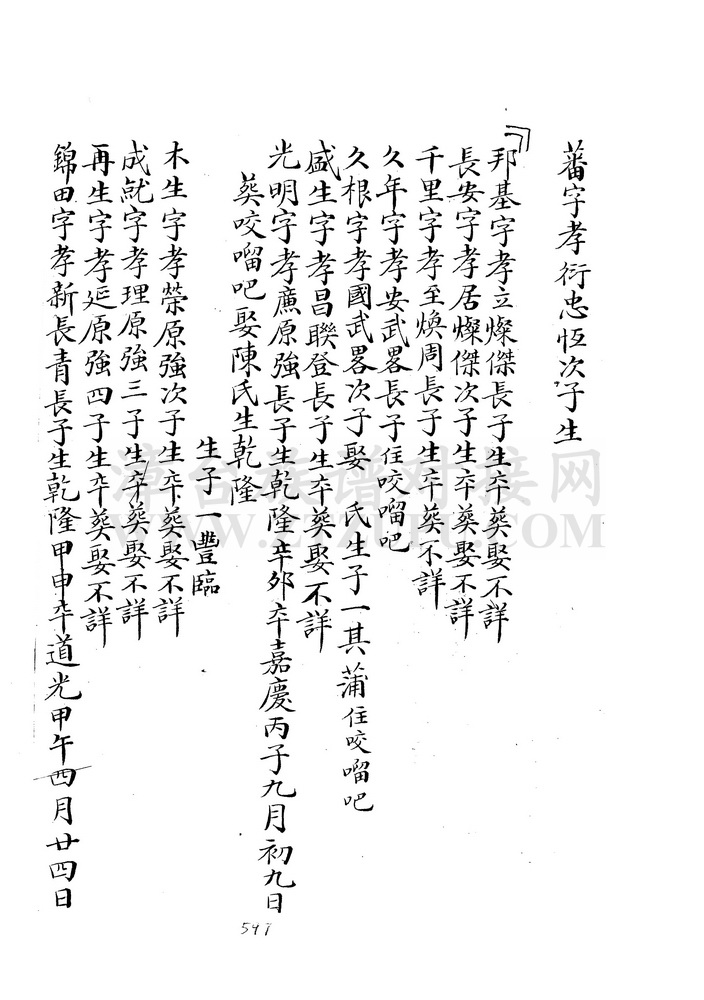 蕃字孝衍忠恆次子生
邦基字孝立燦傑長子生卒葬娶不詳
長安字孝居燦傑次子生卒葬娶不詳
千里字孝至煥周長子生卒葬不詳
久年字孝安武畧長子住咬𠺕吧
久根字孝國武畧次子娶 氏生子一其蒲住咬𠺕吧
盛生字孝昌聯登長子生卒葬娶不詳
光明字孝廌原強長子生乾隆辛夘卒嘉慶丙子九月初九日
葬咬𠺕吧娶陳氏生乾隆
生子一豐臨
木生字孝榮原強次子生卒葬娶不詳
成就字孝理原強三子生卒葬娶不詳
再生字孝延原強四子生卒葬娶不詳
錦田字孝新長青長子生乾隆甲申卒道光甲午四月廿四日
漳台族谱对接网
WWW.ZTZUPU.COM